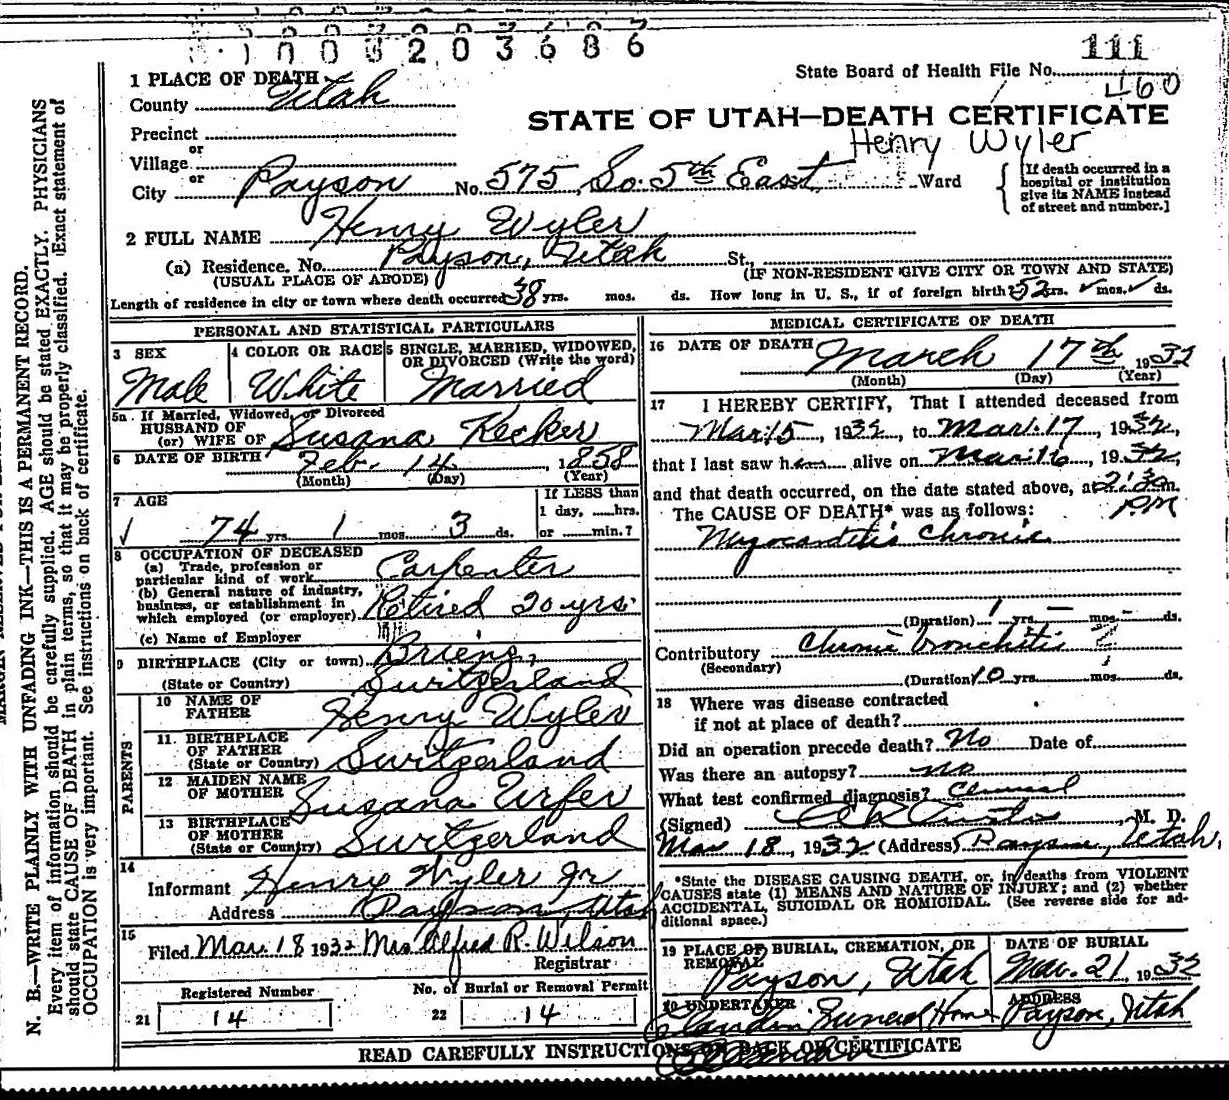 1003203686
111
State Board of Health File No.
460
1 PLACE OF DEATH
County Utah
STATE OF UTAH—DEATH CERTIFICATE
Henry Wyler
Precinct
or
Village
or
City Payson No. 575 So. 5th East Ward
[If death occurred in a hospital or institution give its NAME instead of street and number.]
2 FULL NAME Henry Wyler
(a) Residence. No. Payson, Utah St.,
(USUAL PLACE OF ABODE) (IF NON-RESIDENT GIVE CITY OR TOWN AND STATE)
Length of residence in city or town where death occurred 38 yrs. mos. ds. How long in U. S., if of foreign birth 52 yrs. ✓ mos. ✓ ds.
PERSONAL AND STATISTICAL PARTICULARS
3 SEX
Male
4 COLOR OR RACE
White
5 SINGLE, MARRIED, WIDOWED, OR DIVORCED (Write the word)
Married
5a If Married, Widowed, or Divorced
HUSBAND OF
(or) WIFE OF Susana Kecker
6 DATE OF BIRTH Feb. 14 1858
(Month) (Day) (Year)
7 AGE
✓ 74 yrs. 1 mos. 3 ds.
If LESS than
1 day, ......hrs.
or ......min.?
8 OCCUPATION OF DECEASED
(a) Trade, profession or
particular kind of work Carpenter
(b) General nature of industry,
business, or establishment in
which employed (or employer) Retired 20 yrs.
(c) Name of Employer
9 BIRTHPLACE (City or town) Brienz,
(State or Country) Switzerland
PARENTS
10 NAME OF
FATHER Henry Wyler
11. BIRTHPLACE
OF FATHER
(State or Country) Switzerland
12 MAIDEN NAME
OF MOTHER Susana Urfer
13 BIRTHPLACE
OF MOTHER
(State or Country) Switzerland
14
Informant Henry Wyler Jr
Address Payson, Utah
15
Filed Mar. 18 1932 Mrs Alfred R. Wilson
Registrar
Registered Number
21 14
No. of Burial or Removal Permit
22 14
MEDICAL CERTIFICATE OF DEATH
16 DATE OF DEATH March 17th, 1932
(Month) (Day) (Year)
17 I HEREBY CERTIFY, That I attended deceased from
Mar. 15, 1932, to Mar. 17, 1932,
that I last saw him alive on Mar. 16, 1932,
and that death occurred, on the date stated above, at 2:30 m.
P.M
The CAUSE OF DEATH* was as follows:
Myocarditis Chronic
(Duration) 1 yrs. — mos. — ds.
Contributory Chronic bronchitis
(Secondary)
(Duration) 10 yrs. mos. ds.
18 Where was disease contracted
if not at place of death?
Did an operation precede death? No Date of
Was there an autopsy? no
What test confirmed diagnosis? Clinical
(Signed) M. D.
Mar 18, 1932 (Address) Payson, Utah.
*State the DISEASE CAUSING DEATH, or, in deaths from VIOLENT
CAUSES state (1) MEANS AND NATURE OF INJURY; and (2) whether
ACCIDENTAL, SUICIDAL OR HOMICIDAL. (See reverse side for ad-
ditional space.)
19 PLACE OF BURIAL, CREMATION, OR
REMOVAL
Payson, Utah
DATE OF BURIAL
Mar. 21 1932
20 UNDERTAKER
Funeral Home
ADDRESS
Payson, Utah
READ CAREFULLY INSTRUCTIONS ON BACK OF CERTIFICATE
N. B.—WRITE PLAINLY WITH UNFADING INK—THIS IS A PERMANENT RECORD.
Every item of information should be carefully supplied. AGE should be stated EXACTLY. PHYSICIANS
should state CAUSE OF DEATH in plain terms, so that it may be properly classified. Exact statement of
OCCUPATION is very important. See instructions on back of certificate.